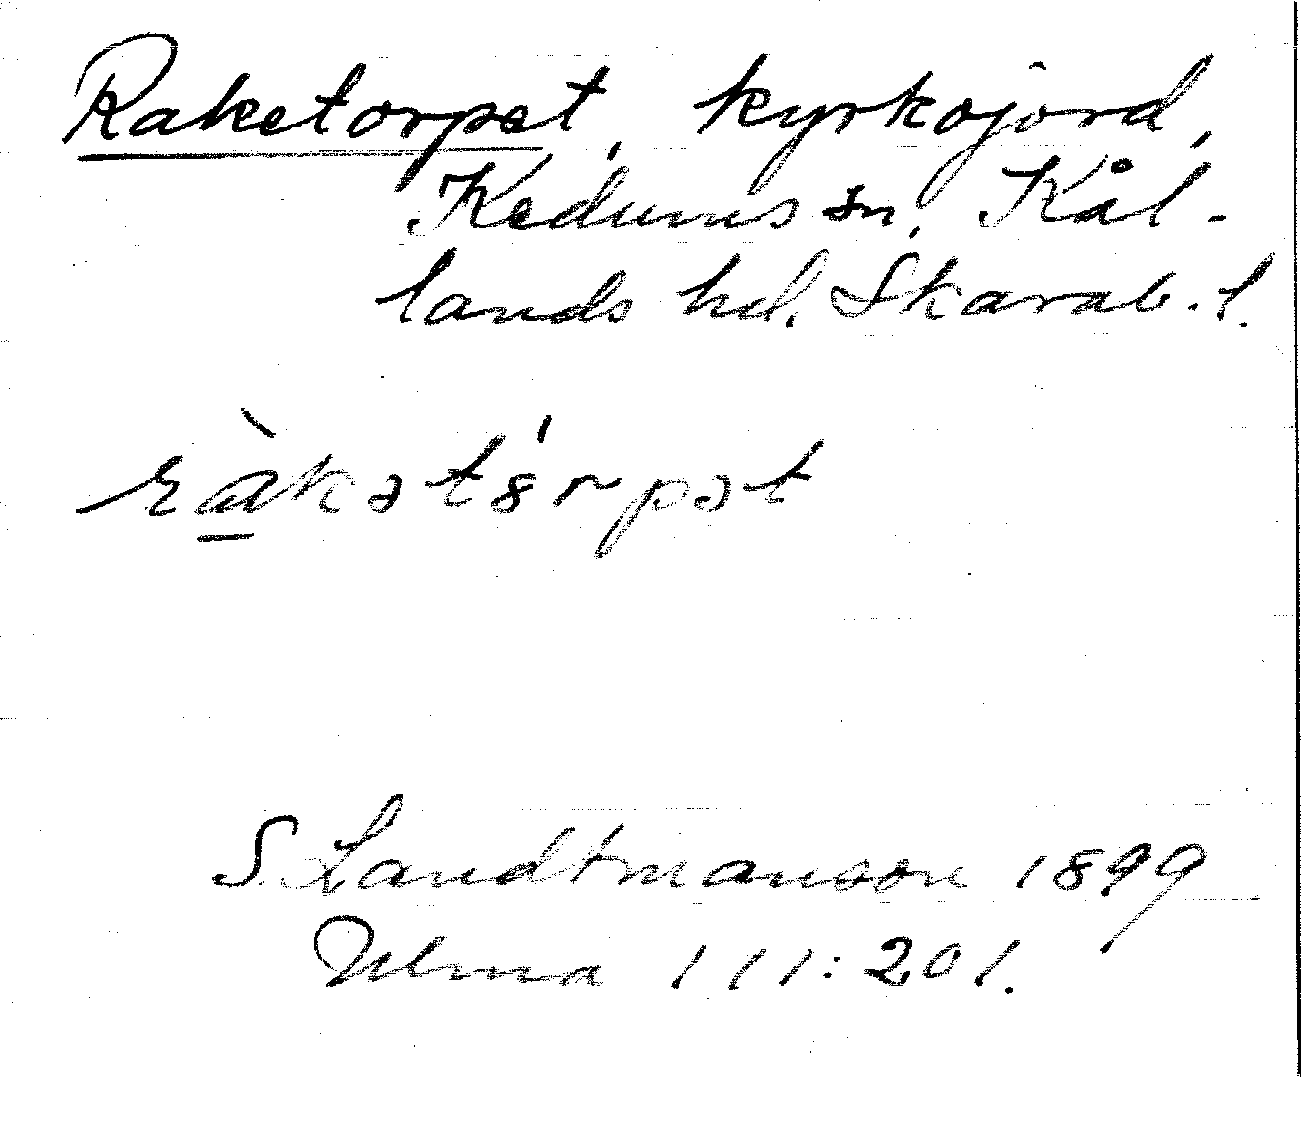 Raketorpet, kyrkojord,
Kedums sn, Kål-
lands hd. Skarab. l.
rὰkətɞ́rpət
S Landtmanson 1899
Ulma 111:201.